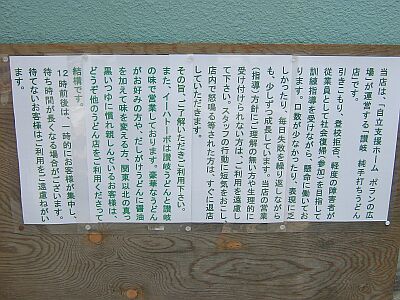 当店は、「自立支援ホーム ポランの広
場」が運営する“讃岐 純手打ちうどん
店”です。
引きこもり、登校拒否、軽度の障害者が
従業員として社会復帰（参加）を目指して
訓練指導を受けながら、懸命に働いてお
ります。口数が少なかったり、表現に乏
しかったり、毎日失敗を繰り返しながら
も、少しずつ成長しています。当店の営業
（指導）方針にご理解の無い方や生理的に
受け付けられない方は、ご利用を遠慮し
て下さい。スタッフの行動に短気をおこし、
店内で怒鳴る等された方は、すぐに退店
していただきます。
その旨、ご了解いただきご利用下さい。
また、イーハトーボは讃岐うどんと讃岐
の味で営業しております。豪華なうどん
がお好みの方や、だしがけうどんに醤油
を加えて味を変える方、関東以北の真っ
黒いつゆに慣れ親しんでいるお客様は、
どうぞ他のうどん店をご利用くださって
結構です。
12時前後は、一時的にお客様が集中し、
待ち時間が長くなる場合がございます。
待てないお客様はご利用をご遠慮ねがい
ます。